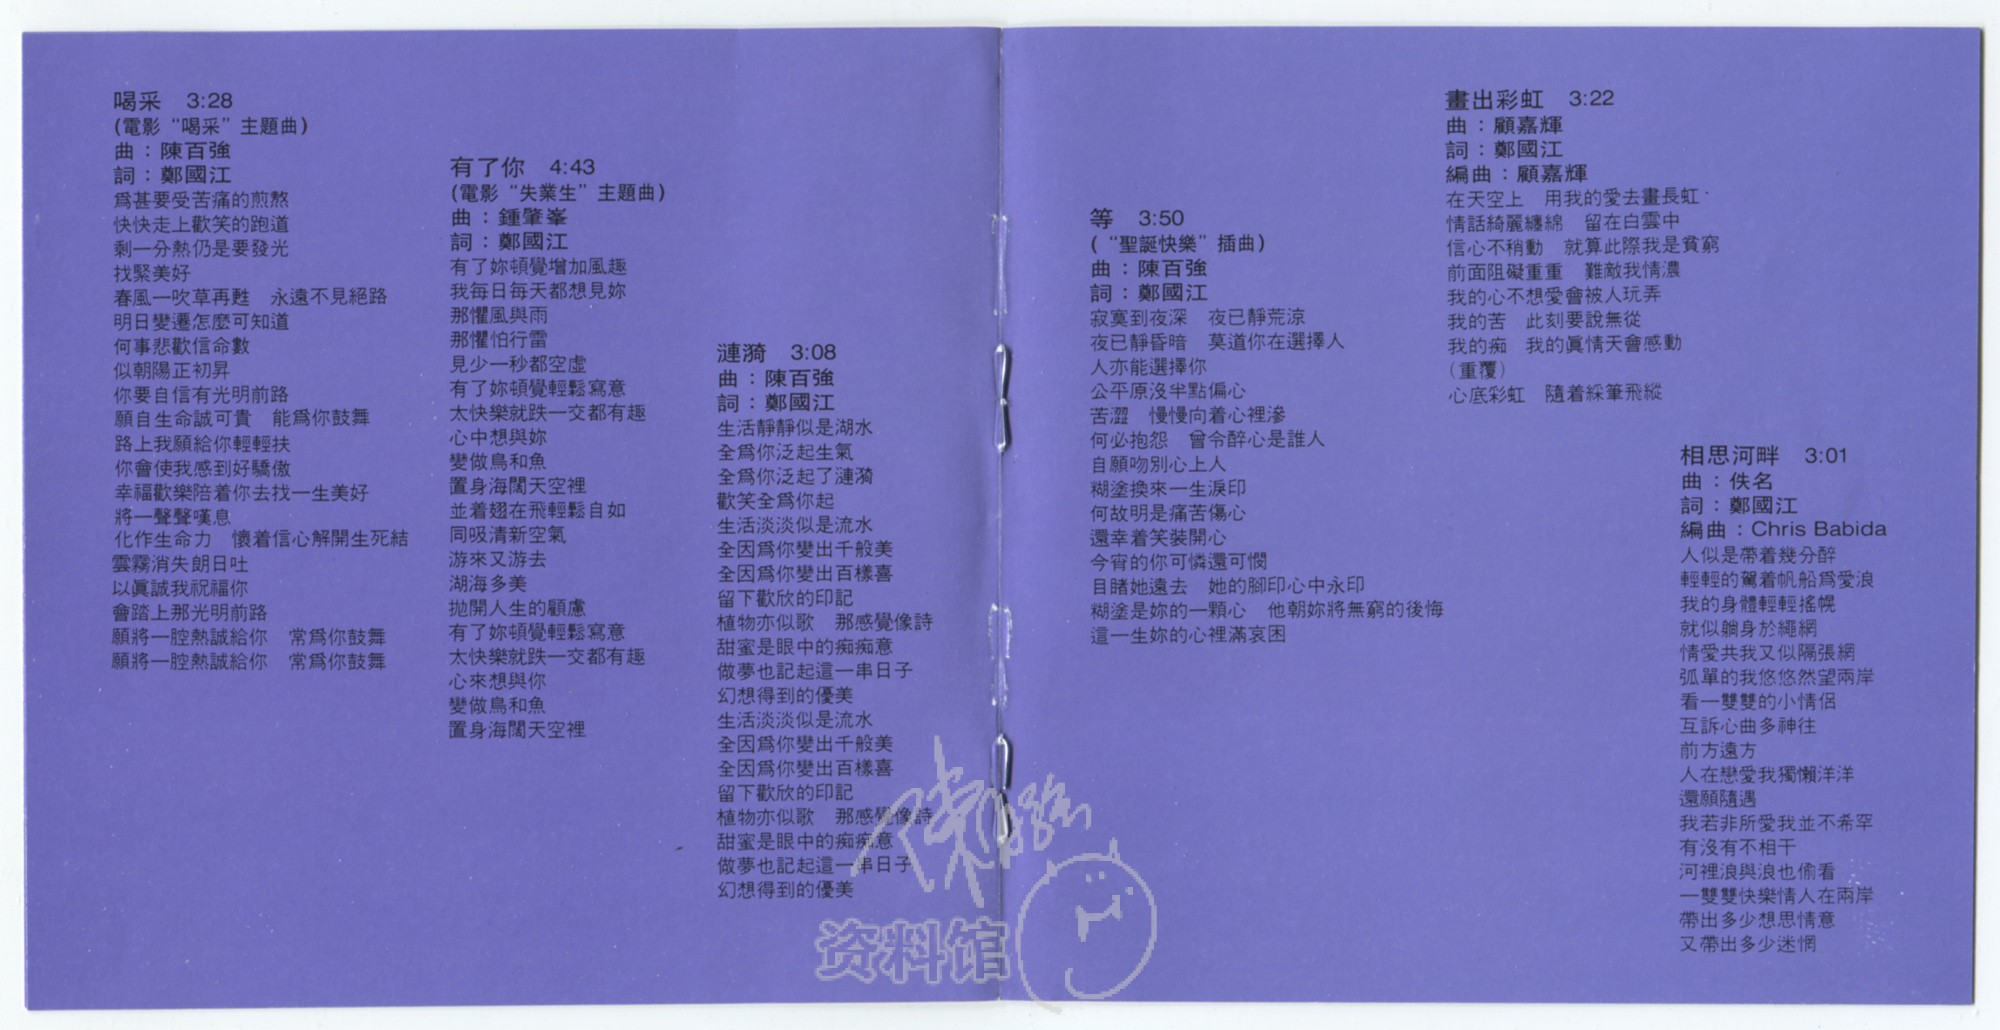 喝采　3:28
(電影 “喝采” 主題曲)
曲：陳百強
詞：鄭國江
爲甚要受苦痛的煎熬
快快走上歡笑的跑道
剩一分熱仍是要發光
找緊美好
春風一吹草再甦　永遠不見絕路
明日變遷怎麼可知道
何事悲歡信命數
似朝陽正初昇
你要自信有光明前路
願自生命誠可貴　能爲你鼓舞
路上我願給你輕輕扶
你會使我感到好驕傲
幸福歡樂陪着你去找一生美好
將一聲聲嘆息
化作生命力　懷着信心解開生死結
雲霧消失朗日吐
以眞誠我祝福你
會踏上那光明前路
願將一腔熱誠給你　常爲你鼓舞
願將一腔熱誠給你　常爲你鼓舞
有了你　4:43
(電影 “失業生” 主題曲)
曲：鍾肇峯
詞：鄭國江
有了妳頓覺增加風趣
我每日每天都想見妳
那懼風與雨
那懼怕行雷
見少一秒都空虛
有了妳頓覺輕鬆寫意
太快樂就跌一交都有趣
心中想與妳
變做鳥和魚
置身海闊天空裡
並着翅在飛輕鬆自如
同吸清新空氣
游來又游去
湖海多美
拋開人生的顧慮
有了妳頓覺輕鬆寫意
太快樂就跌一交都有趣
心來想與你
變做鳥和魚
置身海闊天空裡
漣漪　3:08
曲：陳百強
詞：鄭國江
生活靜靜似是湖水
全爲你泛起生氣
全爲你泛起了漣漪
歡笑全爲你起
生活淡淡似是流水
全因爲你變出千般美
全因爲你變出百樣喜
留下歡欣的印記
植物亦似歌　那感覺像詩
甜蜜是眼中的痴痴意
做夢也記起這一串日子
幻想得到的優美
生活淡淡似是流水
全因爲你變出千般美
全因爲你變出百樣喜
留下歡欣的印記
植物亦似歌　那感覺像詩
甜蜜是眼中的痴痴意
做夢也記起這一串日子
幻想得到的優美
等　3:50
( “聖誕快樂” 插曲)
曲：陳百強
詞：鄭國江
寂寞到夜深　夜已靜荒涼
夜已靜昏暗　莫道你在選擇人
人亦能選擇你
公平原沒半點偏心
苦澀　慢慢向着心裡滲
何必抱怨　曾令醉心是誰人
自願吻別心上人
糊塗換來一生淚印
何故明是痛苦傷心
還幸着笑裝開心
今宵的你可憐還可憫
目睹她遠去　她的腳印心中永印
糊塗是妳的一顆心　他朝妳將無窮的後悔
這一生妳的心裡滿哀困
畫出彩虹　3:22
曲：顧嘉輝
詞：鄭國江
編曲：顧嘉輝
在天空上　用我的愛去畫長虹
情話綺麗纏綿　留在白雲中
信心不稍動　就算此際我是貧窮
前面阻礙重重　難敵我情濃
我的心不想愛會被人玩弄
我的苦　此刻要說無從
我的痴　我的眞情天會感動
(重覆)
心底彩虹　隨着綵筆飛縱
相思河畔　3:01
曲：佚名
詞：鄭國江
編曲：Chris Babida
人似是帶着幾分醉
輕輕的駕着帆船爲愛浪
我的身體輕輕搖幌
就似躺身於繩網
情愛共我又似隔張網
孤單的我悠悠然望兩岸
看一雙雙的小情侶
互訴心曲多神往
前方遠方
人在戀愛我獨懶洋洋
還願隨遇
我若非所愛我並不希罕
有沒有不相干
河裡浪與浪也偷看
一雙雙快樂情人在兩岸
帶出多少想思情意
又帶出多少迷惘
资料馆